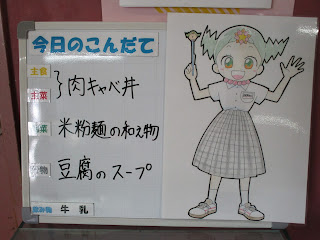 今日のこんだて
主食
主菜
肉キャベ丼
副菜
米粉麺の和え物
汁物
豆腐のスープ
飲み物
牛乳